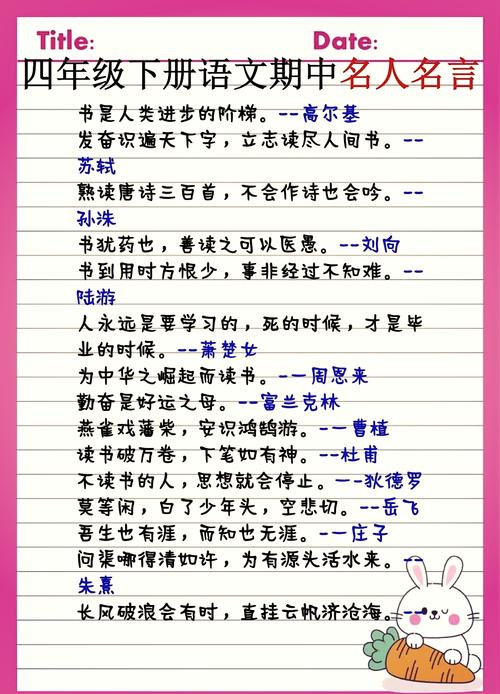 Title: Date:
四年级下册语文期中名人名言
书是人类进步的阶梯。--高尔基
发奋识遍天下字，立志读尽人间书。--
苏轼
熟读唐诗三百首，不会作诗也会吟。--
孙洙
书犹药也，善读之可以医愚。--刘向
书到用时方恨少，事非经过不知难。--
陆游
人永远是要学习的，死的时候，才是毕
业的时候。--萧楚女
为中华之崛起而读书。-一周恩来
勤奋是好运之母。--富兰克林
燕雀戏藩柴，安识鸿鹄游。-一曹植
读书破万卷，下笔如有神。--杜甫
不读书的人，思想就会停止。一-狄德罗
莫等闲，白了少年头，空悲切。--岳飞
吾生也有涯，而知也无涯。-一庄子
问渠哪得清如许，为有源头活水来。--
朱熹
长风破浪会有时，直挂云帆济沧海。--